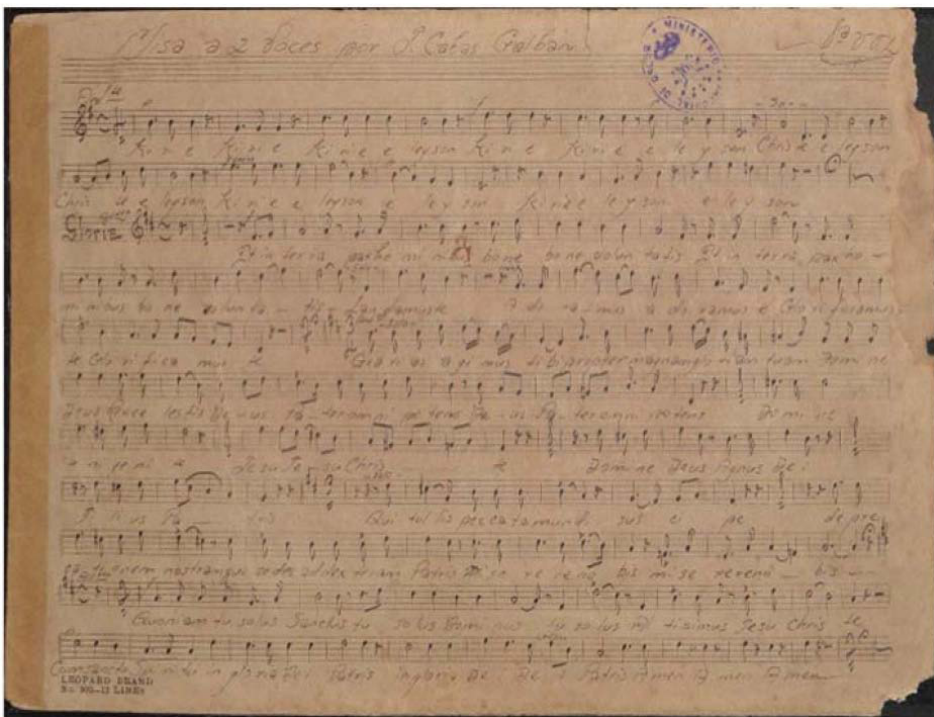 Misa a 2 Voces por J. Catas Galban
MINISTERIO
Kirie Kirie Kirie e leyson Kirie Kirie e le y son Christe e leyson
Chris te e leyson Kirie e leyson e le y son Kirie e le y son e le y son
Gloria
Et in terra pax ho mi nibus bone bone volun tatis Et in terra pax ho
minibus bo ne volunta tis Laudamus te A do ramus a do ramus te Glorificamus
te Glo ri fica mus te Gracias agi mus tibi propter magnam glo riam tuam Domine
Deus Rex ce lestis De-us Pa-ter omni potens De-us Pa-ter omni potens Do mi ne
Jesu Je su Chris te Domine Deus Agnus De i
Fi li us Pa tris Qui tol lis peccata mundi sus ci pe depre
ca-ti onem nostram qui sedes ad dex teriam Patris Mi se re re no bis mi se rere no bis
Quoniam tu solus Sanctus tu solus Dominus tu solus Al tisimus Jesu Chris te
Cum Sancto Spiritu in gloria Dei Patris in gloria De i Patris Amen Amen Amen
LEOPARD BRAND
No. 905-12 LINES